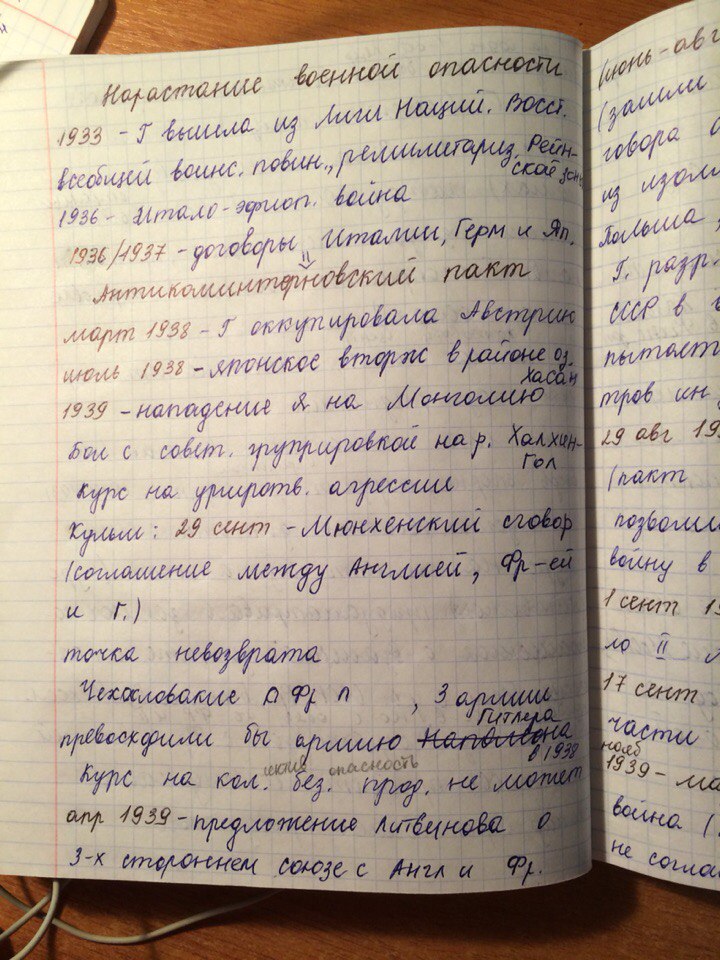 Нарастание военной опасности
1933 - Г вышла из Лиги Наций. Восст.
всеобщей воинс. повин., ремилитариз. Рейн-
ской зоны
1936 - Итало-эфиоп. война
1936/1937 - договоры Италии, Герм и Яп.
Антикоминтерновский пакт
март 1938 - Г оккупировала Австрию
июль 1938 - японское вторж в районе оз.
Хасан
1939 - нападение Я на Монголию
Бои с совет. группировкой на р. Халхин-
Гол
Курс на умиротв. агрессии
Кульм: 29 сент - Мюнхенский сговор
(соглашение между Англией, Фр-ей
и Г.)
точка невозврата
Чехословакие Фр , 3 армии
превосходили бы армию Гитлера
в 1938
Курс на кол. без. прод. не может
опасность
апр 1939 - предложение Литвинова о
3-х стороннем союзе с Англ и Фр.
(июнь-авг
(зашли
говора
из изол
Польша,
Г. разр.
СССР в
пытает
тров ин
29 авг 19
(пакт
позволи
войну в
1 сент 19
ло II
17 сент
части
нояб
1939 - ма
война (
не согла